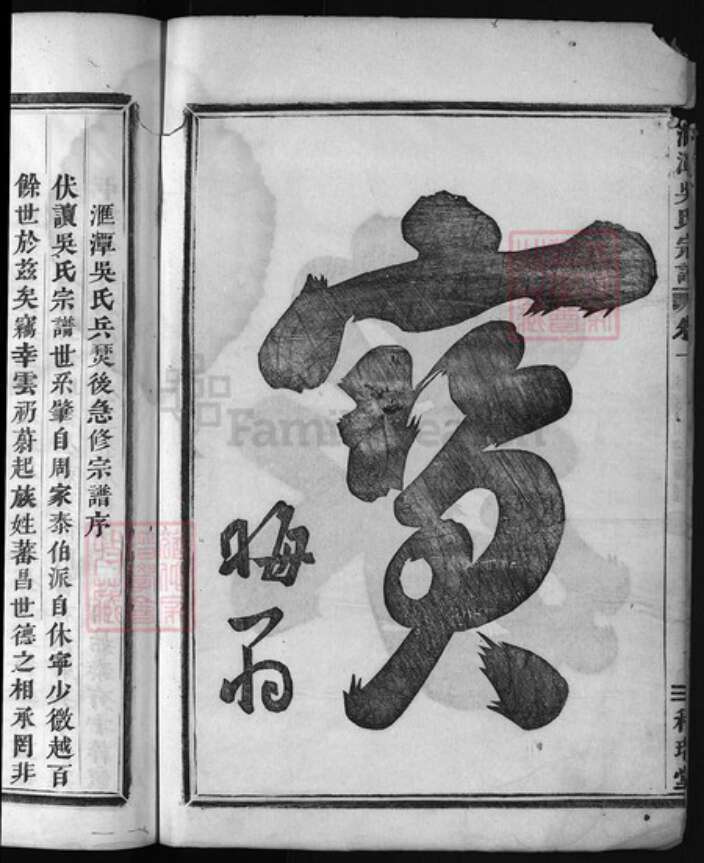 匯潭吳氏宗譜
卷一
寶
晦翁
匯潭吳氏兵燹後急修宗譜序
伏讀吳氏宗譜世系肇自周家泰伯派自休寧少微越百
餘世於茲矣竊幸雲礽蔚起族姓蕃昌世德之相承罔非
FamilySearch